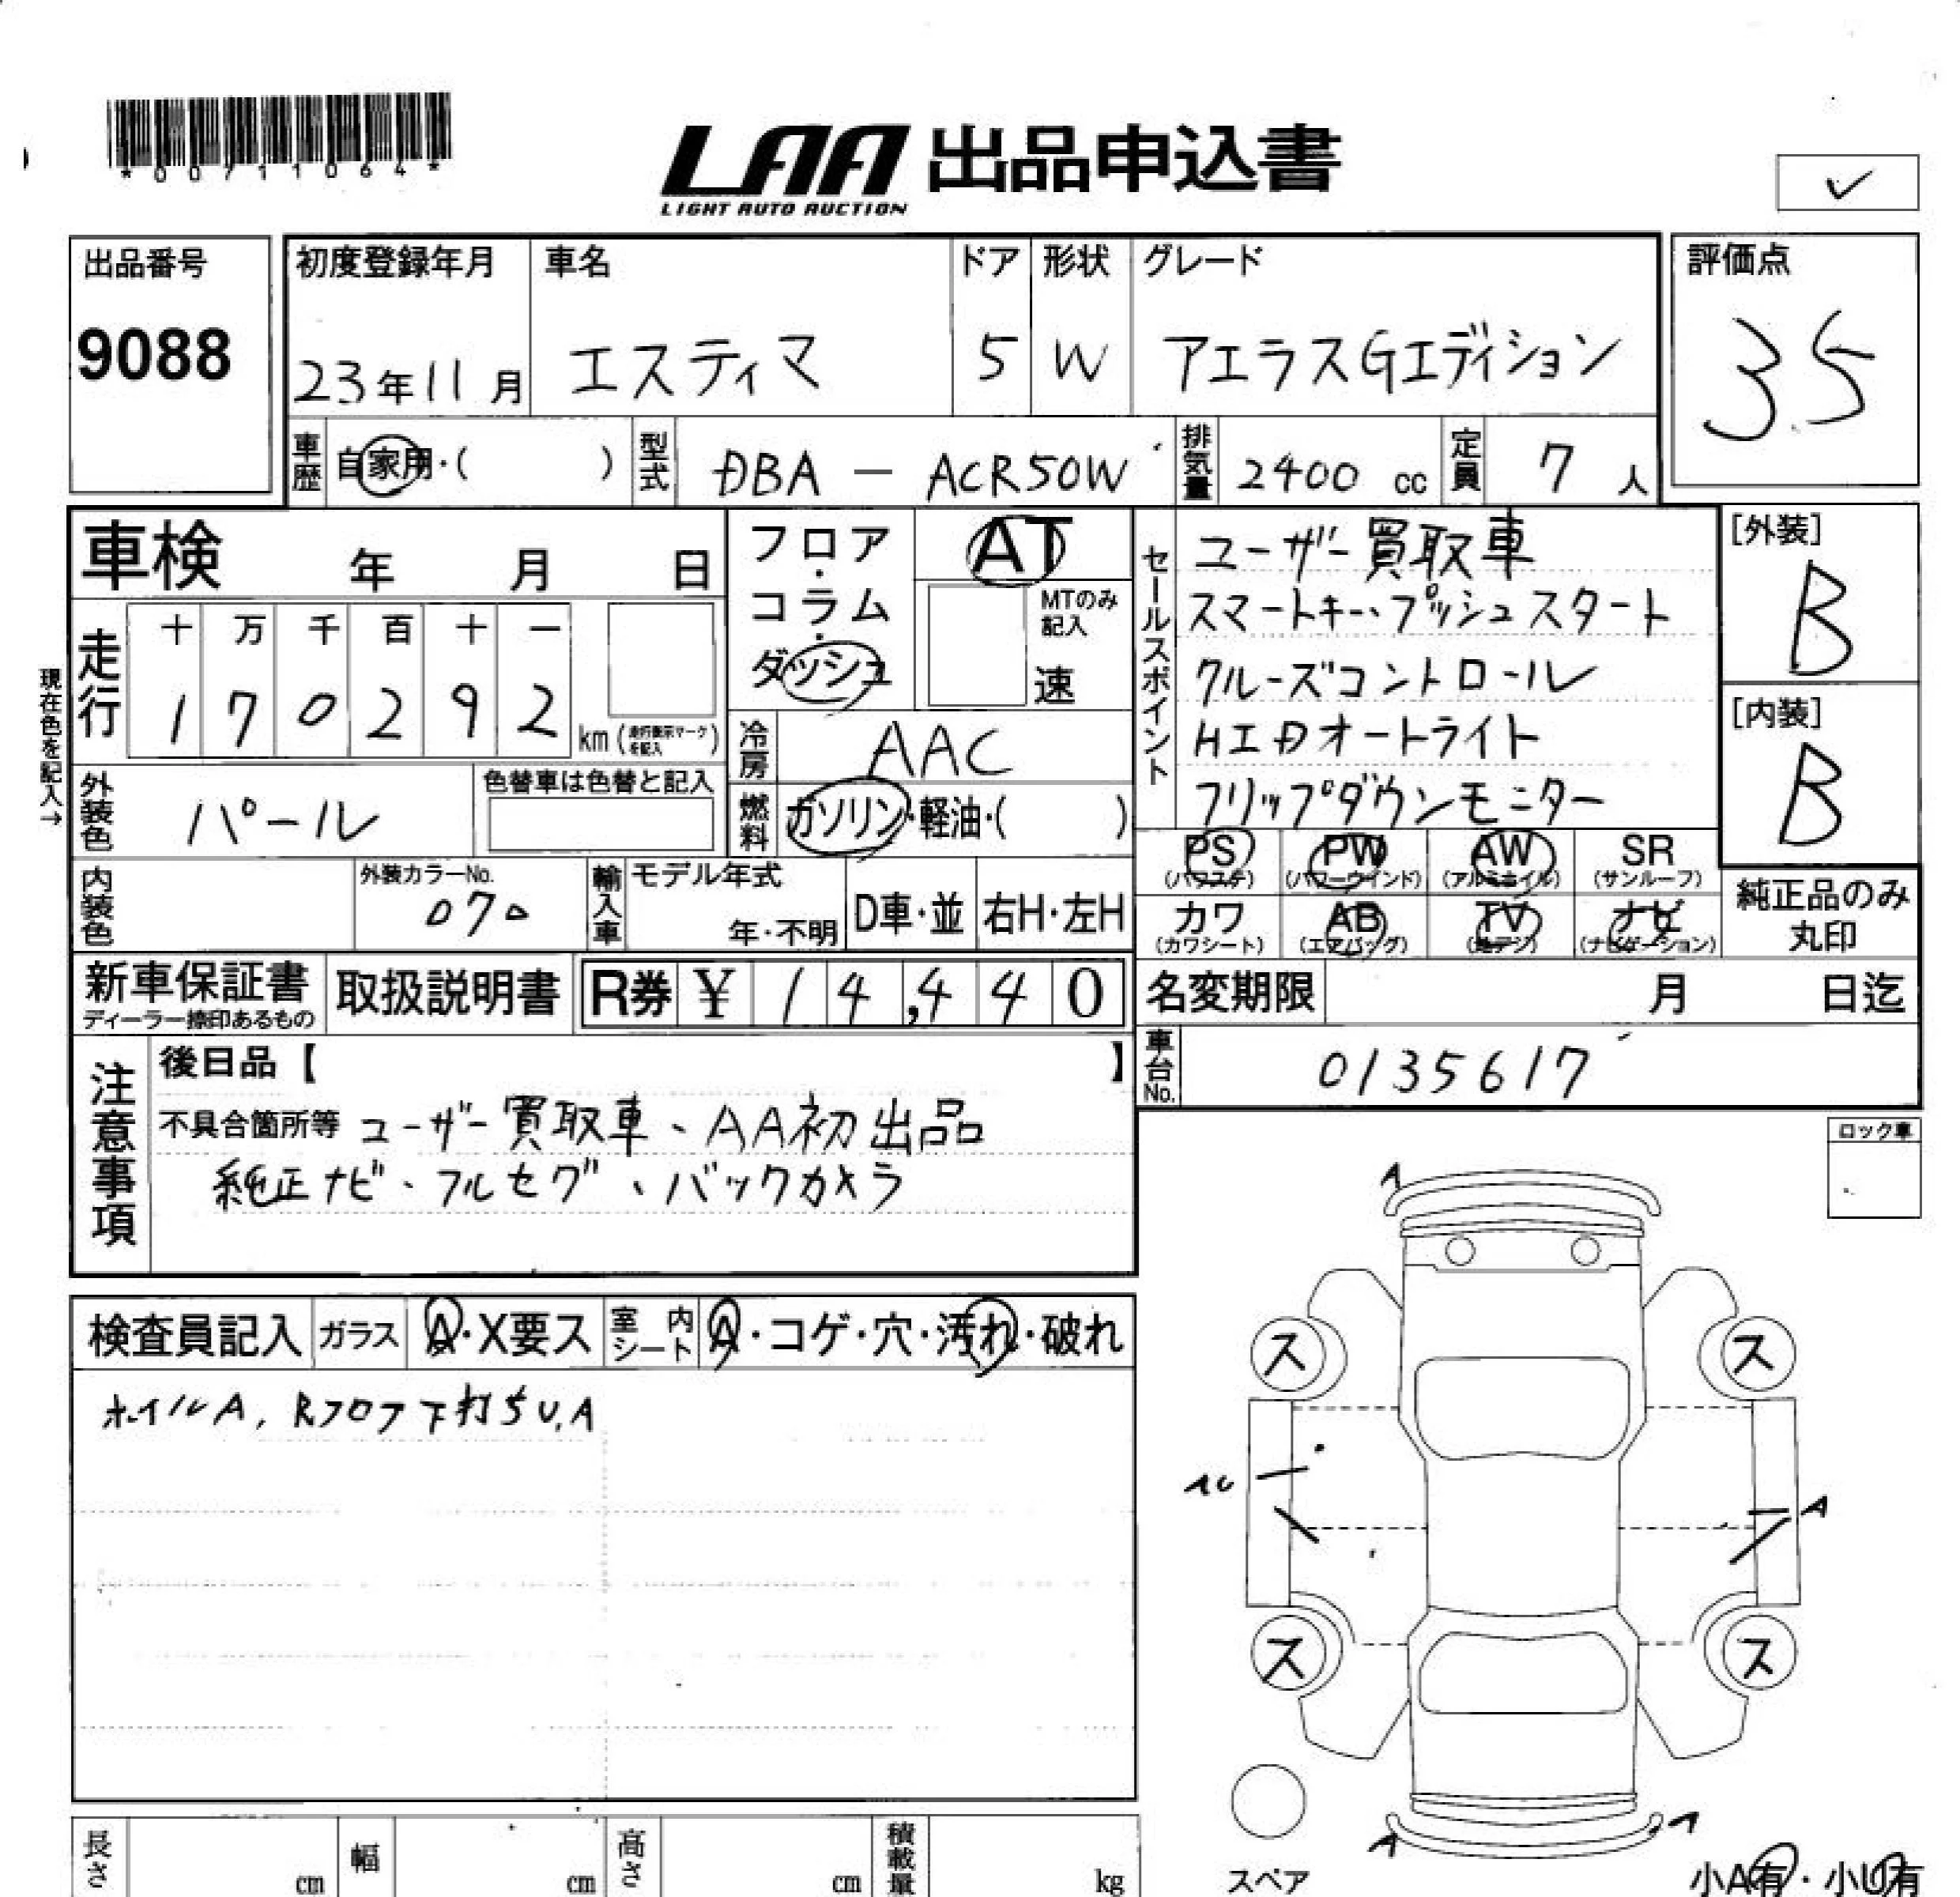 *00711064*
LAA 出品申込書
LIGHT AUTO AUCTION
✓
出品番号
9088
初度登録年月
23年11月
車名
エスティマ
ドア
5
形状
W
グレード
アエラスGエディション
評価点
3.5
車歴 自家用・( )
型式 DBA - ACR50W
排気量 2400 cc
定員 7 人
車検 年 月 日
走行
十 万 千 百 十 一
1 7 0 2 9 2 km(走行表示マークを記入)
現在色を記入→
外装色 パール
色替車は色替と記入
内装色
外装カラーNo.
070
輸入車 モデル年式
年・不明
D車・並
右H・左H
フロア・コラム・ダッシュ
AT
MTのみ記入
速
冷房 AAC
燃料 ガソリン・軽油・( )
セールスポイント
ユーザー買取車
スマートキー、プッシュスタート
クルーズコントロール
HIDオートライト
フリップダウンモニター
[外装]
B
[内装]
B
PS (パワステ)
PW (パワーウインド)
AW (アルミホイル)
SR (サンルーフ)
カワ (カワシート)
AB (エアバッグ)
TV (地デジ)
ナビ (ナビゲーション)
純正品のみ
丸印
新車保証書
ディーラー捺印あるもの
取扱説明書
R券 ¥ 14,440
名変期限 月 日迄
車台No. 0135617
注意事項
後日品【 】
不具合箇所等 ユーザー買取車、AA初出品
純正ナビ、フルセグ、バックカメラ
ロック車
検査員記入 ガラス A・X要ス 室内シート A・コゲ・穴・汚れ・破れ
ホイルA, Rフロア下打ちU,A
A
ス ス
A
ス ス
A
スペア
小A有・小U有
長さ cm
幅 cm
高さ cm
積載量 kg